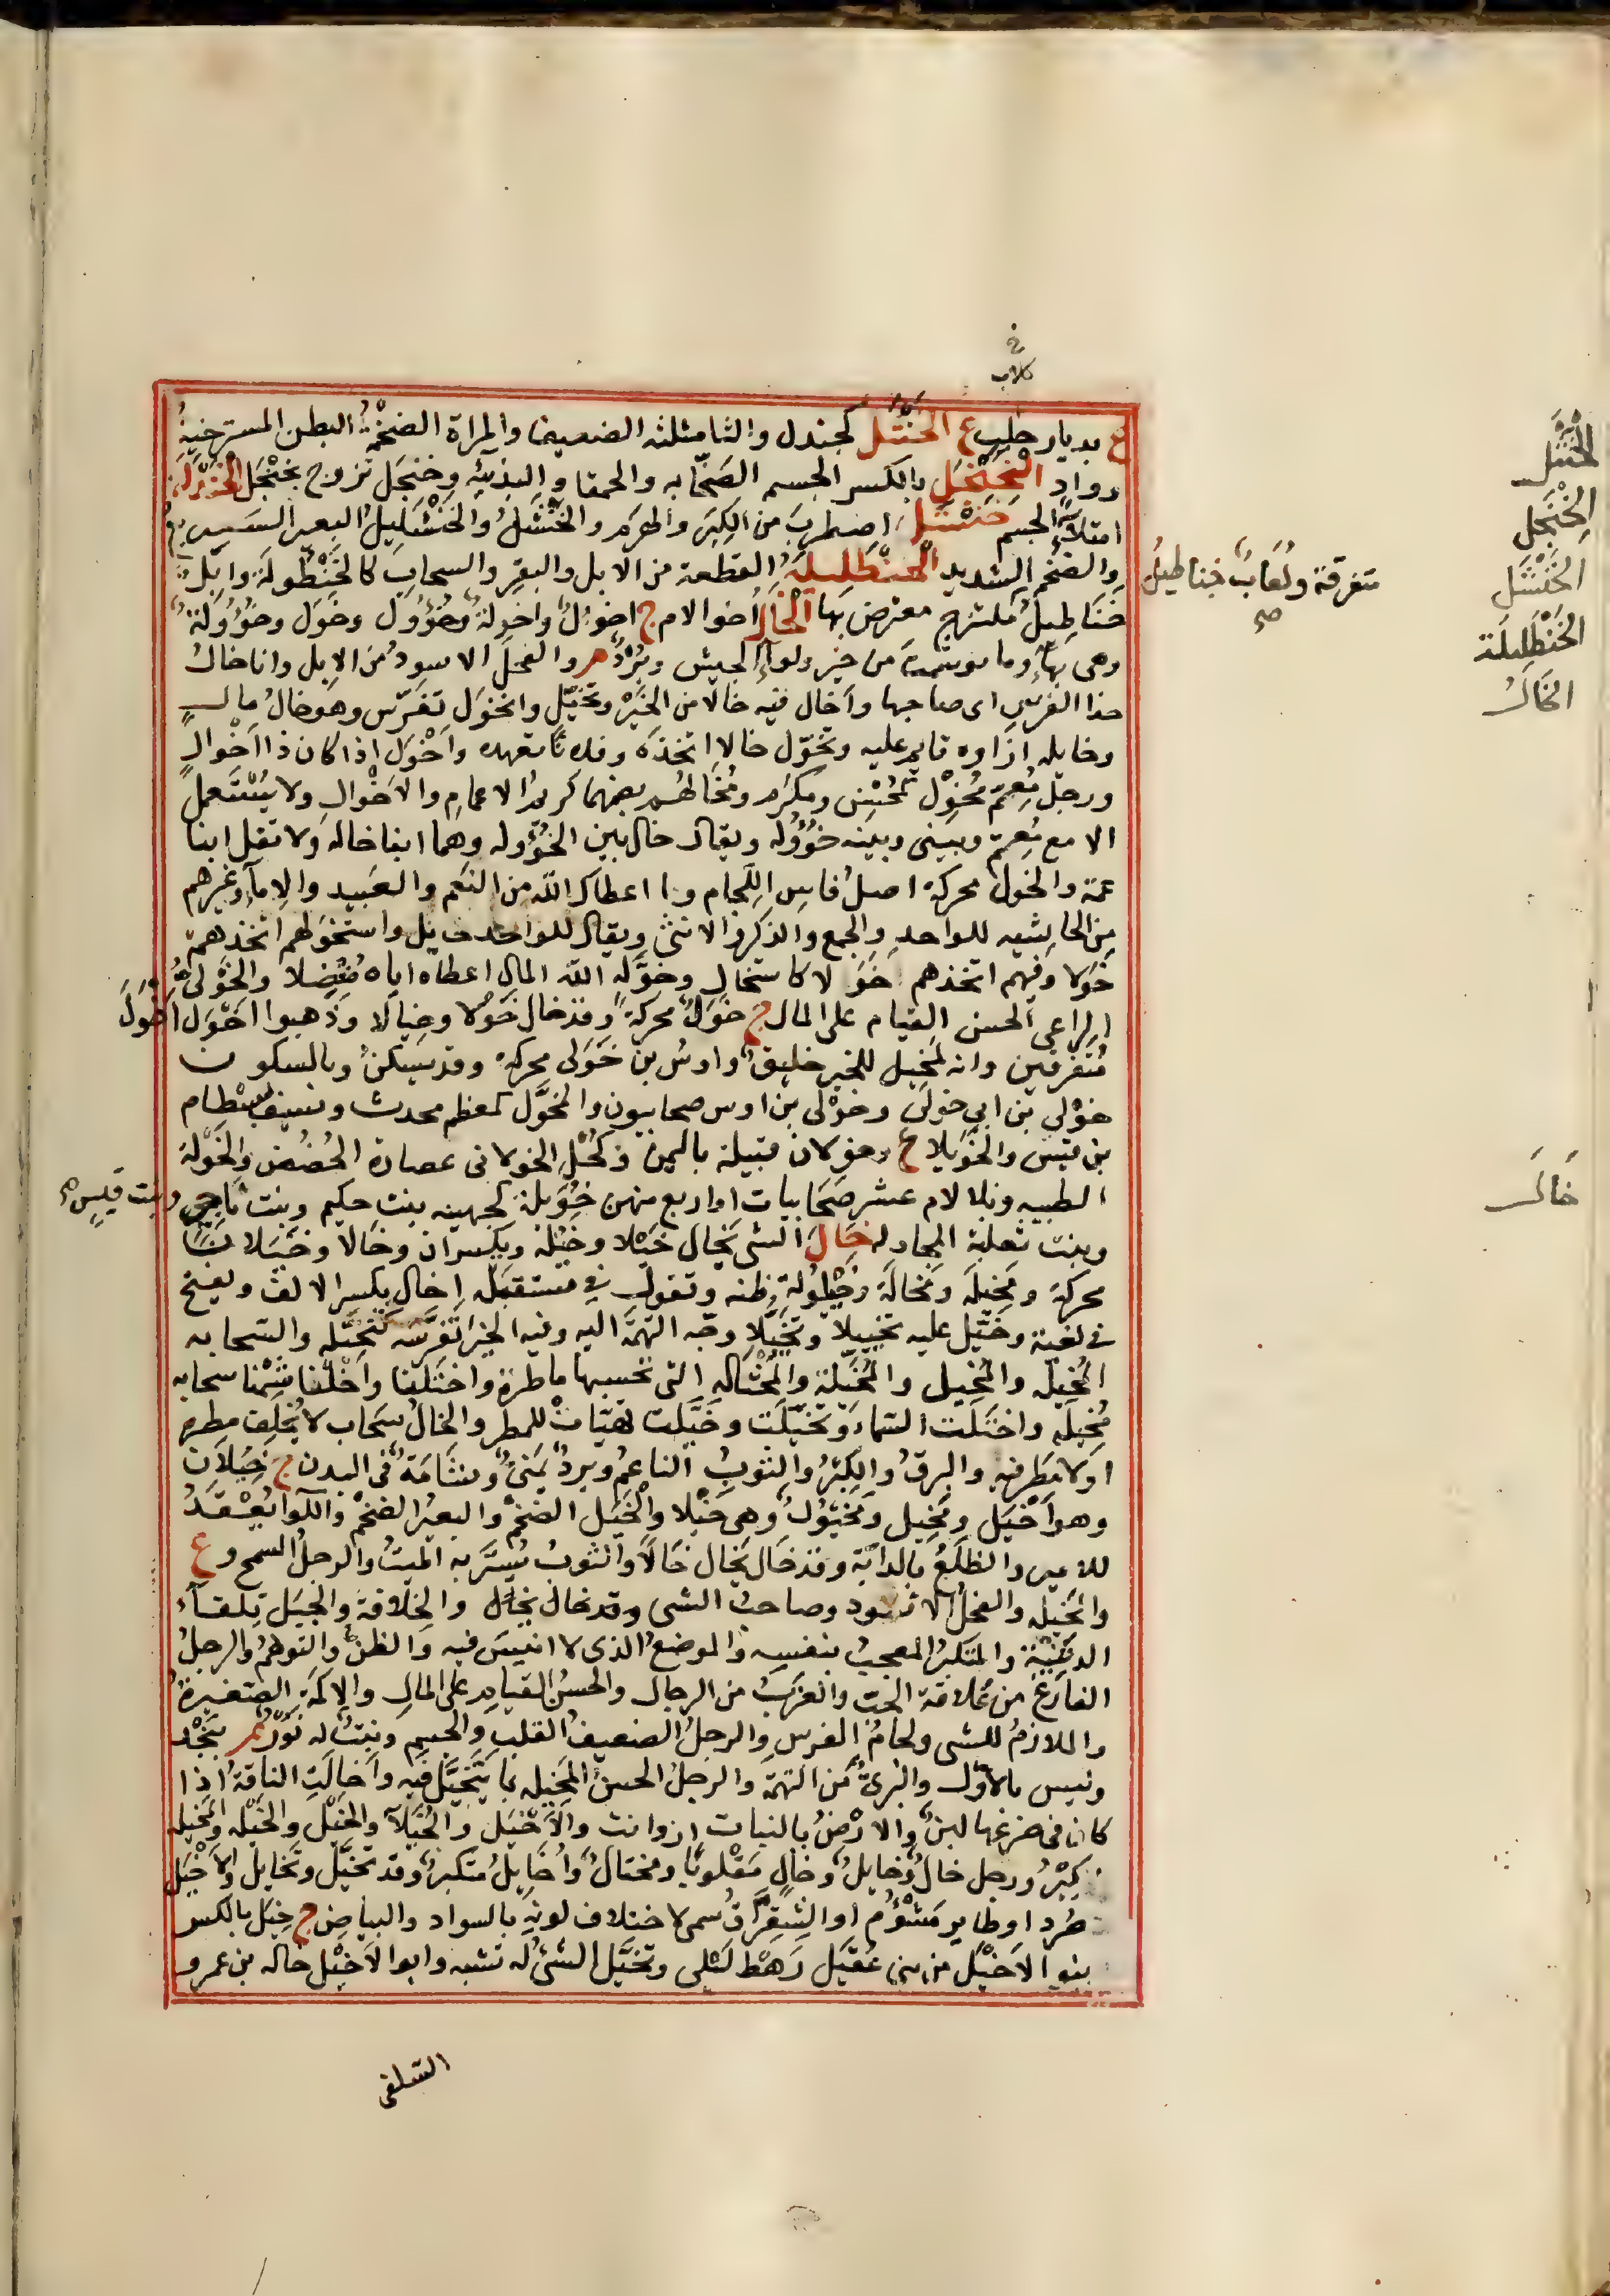 خ
كلاب
ع بديار حلب ع الخنثل كجندل والثا مثلثه الضعيف والمراة الضخمة البطن المسترخية
وواد الخنجل بالكسر الجسم الصخابه والحمقا والبذيه وخنجل تزوج بخنجل الخنزلة
امتلاء الجسم خنشل اضطرب من الكبر والهرم والخنشل والخنشليل البعير السريع
والضخم الشديد الخنطليلة القطعة من الابل والبقر والسحاب كالخنطولة وابل
متفرقة ولعاب خناطيل صح
خناطيل ملتزج معترض بها الخال اخو الام ج اخوال واخولة وخؤول وخول وخؤولة
وهي بهاء وما توسمت من خير ولواء الجيش وبرد م والفحل الاسود من الابل وانا خال
هذا الفرس اى صاحبها واخال فيه خالا من الخير وتخيل وتخول تفرس وهو خال مال
وخايله ازاوه قايم عليه وتخول خالا اتخذه وفلانا تعهده واخول اذا كان ذا اخوال
ورجل معم مخول كمحسن ومكرم ومخال معم بضمهما كريم الاعمام والاخوال ولا يستعمل
الا مع معم وبيني وبينه خؤوله ويقال خال بين الخؤوله وهما ابنا خاله ولا تقل ابنا
عمة والخول محركة اصل فاس اللجام وما اعطاك الله من النعم والعبيد والاماء وغيرهم
من الحاشيه للواحد والجمع والذكر والانثى ويقال للواحد خايل واستخولهم اتخذهم
خولا وفيهم اتخذهم خولا كاستخال وخوله الله المال اعطاه اياه متفضلا والخولى
الراعى الحسن القيام على المال ج خول محركة وقد خال خولا وخيالا وذهبوا اخول اخول
متفرقين وانه لمخيل للخير خليق واوس بن خولى محركة وقد يسكن وبالسكون
خولى بن ابى خولى وخولى بن اوس صحابيون والمخول كمعظم محدث وسيف بسطام
بن قيس والخويلا ع وخولان قبيلة باليمن وكحل الخولان عصارة الحضض والخولة
الظبيه وبلا لام عشر صحابيات او اربع منهن خويلة كجهينه بنت حكيم وبنت ناجى وبنت قيس صح
وبنت ثعلبة المجادله خال الشى يخال خيلا وخيلة ويكسران وخالا وخيلانا
محركة ومخيلة ومخالة وخيلولة ظنه وتقول فى مستقبله إخال بكسر الالف ويفتح
فى لغية وخيل عليه تخييلا وتخيلا وجه التهمة اليه وفيه الخير تفرسه كتخيله والسحابه
المخيلة والمخيل والمخيلة والمختاله التى تحسبها ماطرة واخيلنا واخلنا شمنا سحابه
مخيله واخيلت السماء وتخيلت وخيلت تهيات للمطر والخال سحاب لا يخلف مطره
او لا مطر فيه والبرق والكبر والثوب الناعم وبرد يمنى وشامة فى البدن ج خيلان
وهو اخيل ومخيل ومخيول وهى خيلا والخيل الضخم والبعير الضخم واللوا يعقد
للامير والظلع بالدابة وقد خال يخال خالا والثوب يستر به الميت والرجل السمح وع
والمخيله والفحل الاسود وصاحب الشى وقد خال يخال والخلافة والجبل تلقاء
الدثينة والمتكبر المعجب بنفسه والموضع الذى لا انيس فيه والظن والتوهم والرجل
الفارغ من علاقة الحب والعزب من الرجال والحسن القيام على المال والاكمة الصغيرة
والملازم للشى ولجام الفرس والرجل الضعيف القلب والجسم ونبت له نور م بنجد
وليس بالاول والبرى من التهمة والرجل الحسن المخيله بما يتخيل فيه واخالت الناقة اذا
كان فى ضرعها لبن والارض بالنبات ازدانت والاخيل والخيلا والخيل والخيله والمخيله
كبر ورجل خال وخايل وخال مقلوبا ومختال واخايل متكبر وقد تخيل وتخايل والاخيل
صرد او طاير مشؤم او الشقراق سمى لاختلاف لونه بالسواد والبياض ج خيل بالكسر
بنو الاخيل من بنى عقيل رهط ليلى وتخيل الشى له تشبه وابو الاخيل خاله بن عمرو
السلفى
الخنثل
الخنجل
الخنشل
الخنطليلة
الخال
خال